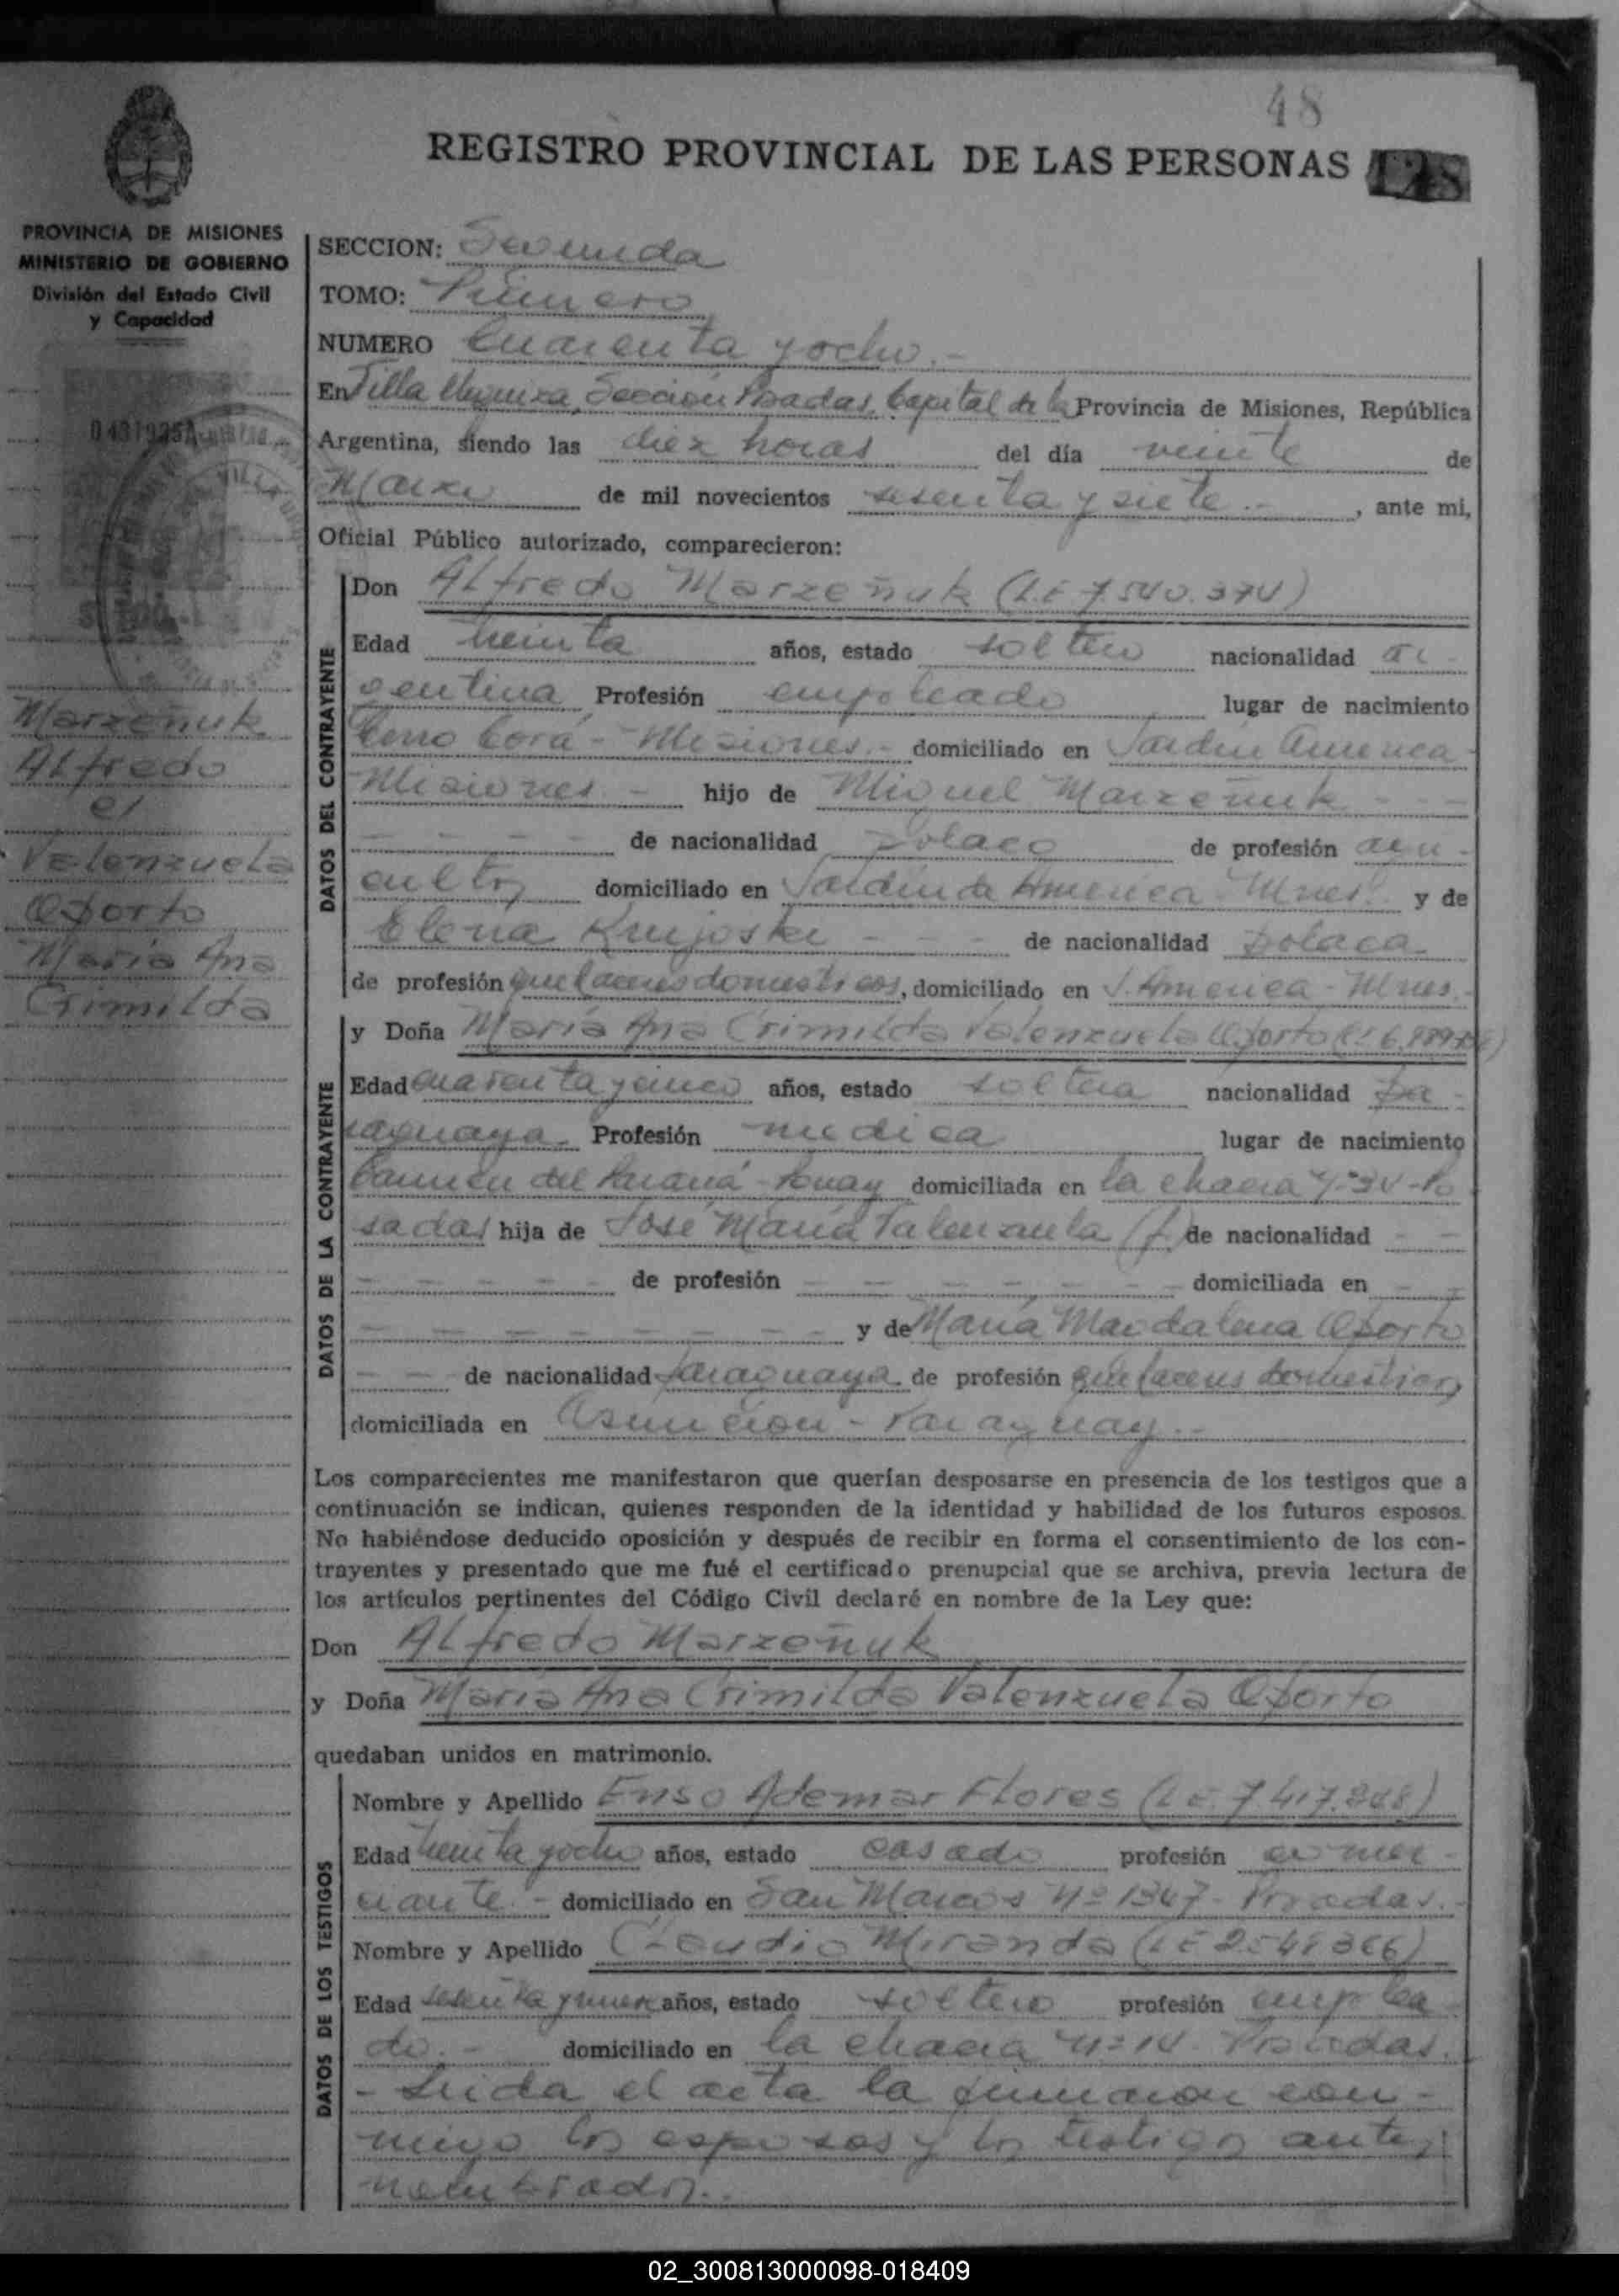 48
REGISTRO PROVINCIAL DE LAS PERSONAS 128
PROVINCIA DE MISIONES
MINISTERIO DE GOBIERNO
División del Estado Civil
y Capacidad
Marzeñuk
Alfredo
c/
Valenzuela
Oporto
María Ana
Crimilda
SECCION: Segunda
TOMO: Primero
NUMERO Cuarenta y ocho.-
En Villa Urquiza, Sección Posadas, Capital de la Provincia de Misiones, República
Argentina, siendo las diez horas del día veinte de
Marzo de mil novecientos sesenta y siete.-, ante mi,
Oficial Público autorizado, comparecieron:
DATOS DEL CONTRAYENTE
Don Alfredo Marzeñuk (L.E 7.540.374)
Edad treinta años, estado soltero nacionalidad ar-
gentina Profesión empleado lugar de nacimiento
Cerro Corá - Misiones.- domiciliado en Jardín America-
Misiones.- hijo de Miguel Marzeñuk - - -
- - - - - de nacionalidad polaco de profesión agri-
cultor domiciliado en Jardín de America - Mnes. y de
Elena - - - de nacionalidad polaca
de profesión quehaceres domesticos, domiciliado en J. America - Mnes.-
DATOS DE LA CONTRAYENTE
y Doña María Ana Crimilda Valenzuela Oporto
Edad cuarenta y cinco años, estado soltera nacionalidad pa-
raguaya. Profesión medica lugar de nacimiento
Carmen del Paraná - Pguay domiciliada en la chacra Nº 34 - Po
sadas hija de José María Valenzuela (f) de nacionalidad - -
- - - - - de profesión - - - - - - domiciliada en - -
- - - - - - - y de María Magdalena Oporto
- - - de nacionalidad paraguaya de profesión quehaceres domesticos
domiciliada en Asunción - Paraguay.-
Los comparecientes me manifestaron que querían desposarse en presencia de los testigos que a
continuación se indican, quienes responden de la identidad y habilidad de los futuros esposos.
No habiéndose deducido oposición y después de recibir en forma el consentimiento de los con-
trayentes y presentado que me fué el certificado prenupcial que se archiva, previa lectura de
los artículos pertinentes del Código Civil declaré en nombre de la Ley que:
Don Alfredo Marzeñuk
y Doña María Ana Crimilda Valenzuela Oporto
quedaban unidos en matrimonio.
DATOS DE LOS TESTIGOS
Nombre y Apellido Enso Ademar Flores (L.E. 7.417.248)
Edad treinta y ocho años, estado casado profesión comer-
ciante.- domiciliado en San Marcos Nº 1347 - Posadas.-
Nombre y Apellido Claudio Miranda (LE 2548366)
Edad sesenta y nueve años, estado soltero profesión emplea
do.- domiciliado en la chacra Nº 14. Posadas.
- Leida el acta la firmaron con-
migo los esposos y los testigos ante
nombrados.-
02_300813000098-018409